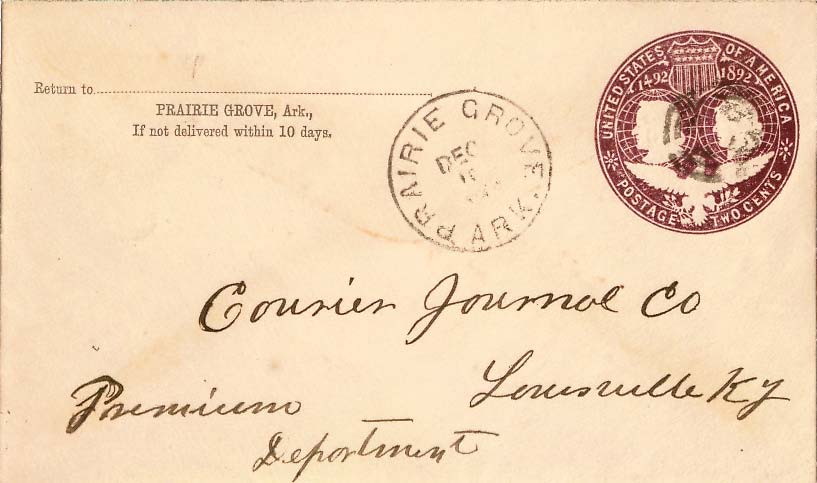 Return to
PRAIRIE GROVE, Ark.,
If not delivered within 10 days.
PRAIRIE GROVE, ARK.
DEC
UNITED STATES OF AMERICA
1492 1892
POSTAGE TWO CENTS
Courier Journal Co
Louisville Ky
Premium
Department